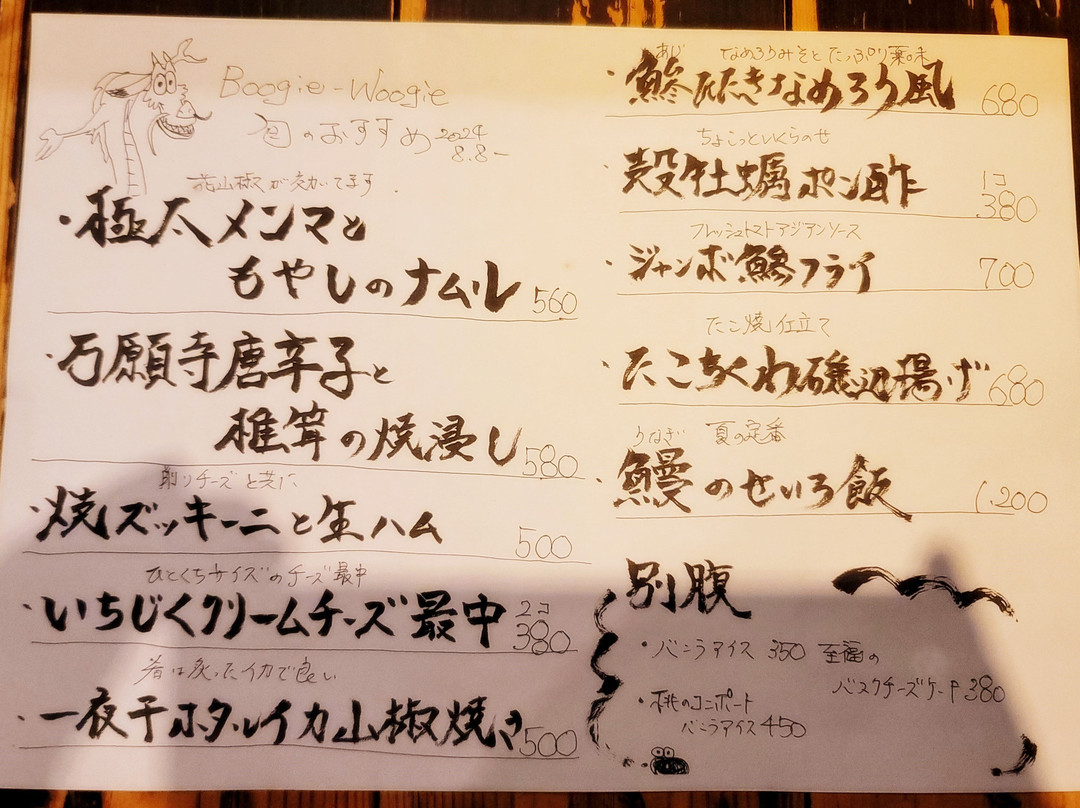 Boogie-Woogie
旬のおすすめ 2024 8.8~
花山椒が効いてます
・極太メンマと
もやしのナムル 560
・万願寺唐辛子と
椎茸の焼浸し 580
削りチーズと共に
・焼ズッキーニと生ハム 500
ひとくちサイズのチーズ最中
・いちじくクリームチーズ最中 2コ 380
肴は炙ったイカで良い
・一夜干ホタルイカ山椒焼き 500
あじ なめろうみそとたっぷり薬味
・鯵たたきなめろう風 680
ちょこっといくらのせ
・殻牡蠣ポン酢 1コ 380
フレッシュトマトアジアンソース
・ジャンボ鯵フライ 700
たこ焼仕立て
・たこちくわ磯辺揚げ 680
うなぎ 夏の定番
・鰻のせいろ飯 1,200
別腹
・バニラアイス 350
至福の
バスクチーズケーキ 380
・桃のコンポート
バニラアイス 450